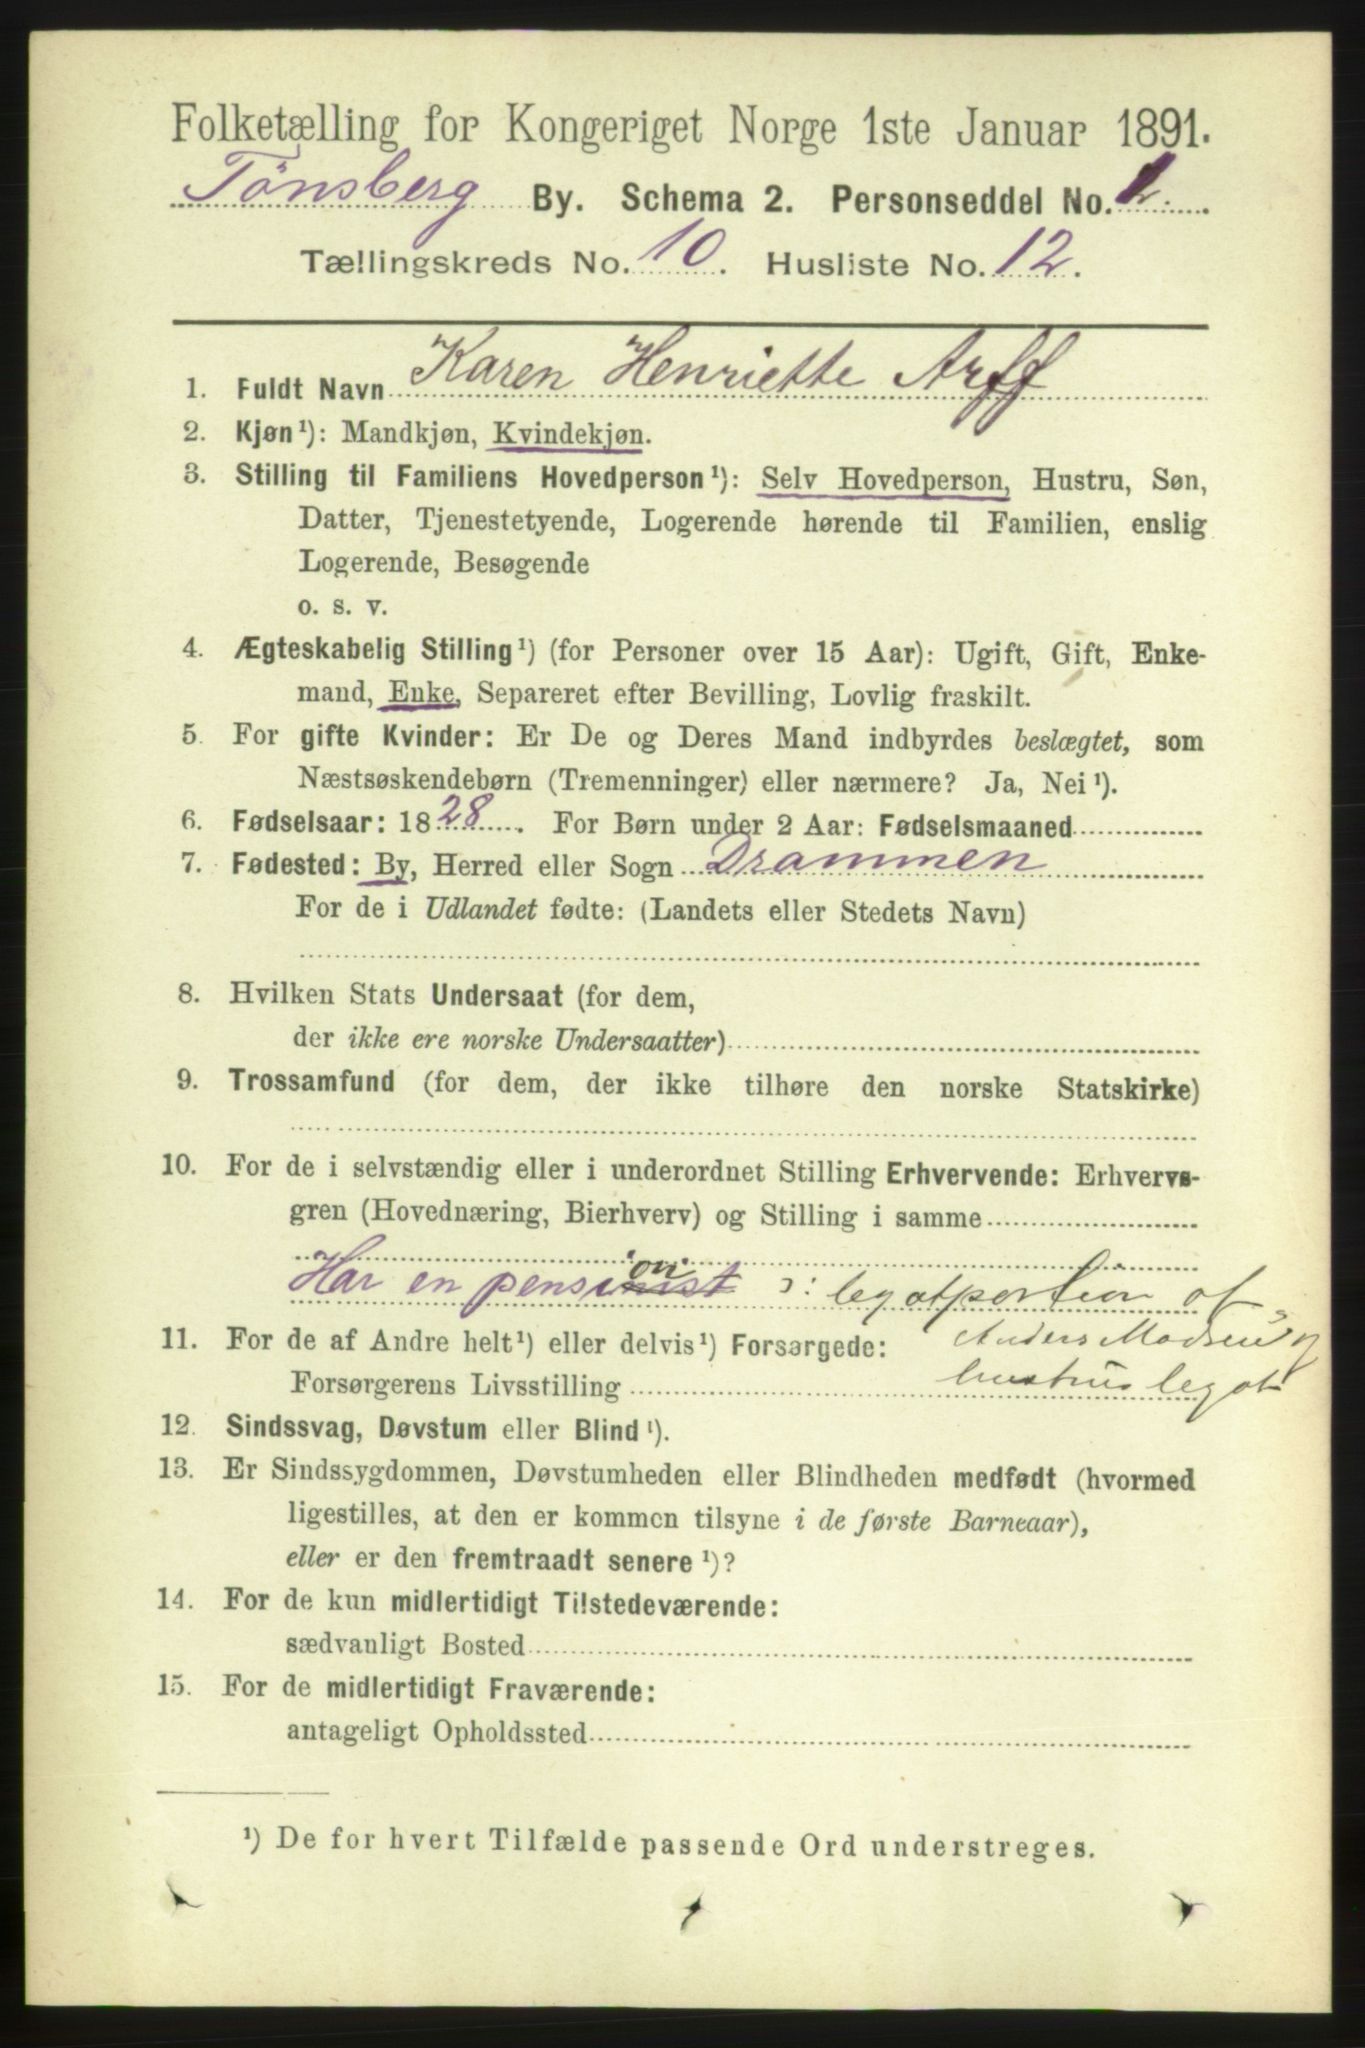 Folketælling for Kongeriget Norge 1ste Januar 1891.
Tönsberg By. Schema 2. Personseddel No. 1.
Tællingskreds No. 10. Husliste No. 12.
1. Fuldt Navn Karen Henriette Arff
2. Kjøn¹): Mandkjøn, Kvindekjøn.
3. Stilling til Familiens Hovedperson¹): Selv Hovedperson, Hustru, Søn,
Datter, Tjenestetyende, Logerende hørende til Familien, enslig
Logerende, Besøgende
o. s. v.
4. Ægteskabelig Stilling¹) (for Personer over 15 Aar): Ugift, Gift, Enke-
mand, Enke, Separeret efter Bevilling, Lovlig fraskilt.
5. For gifte Kvinder: Er De og Deres Mand indbyrdes beslægtet, som
Næstsøskendebørn (Tremenninger) eller nærmere? Ja, Nei¹).
6. Fødselsaar: 1828. For Børn under 2 Aar: Fødselsmaaned
7. Fødested: By, Herred eller Sogn Drammen
For de i Udlandet fødte: (Landets eller Stedets Navn)
8. Hvilken Stats Undersaat (for dem,
der ikke ere norske Undersaatter)
9. Trossamfund (for dem, der ikke tilhøre den norske Statskirke)
10. For de i selvstændig eller i underordnet Stilling Erhvervende: Erhvervs-
gren (Hovednæring, Bierhverv) og Stilling i samme
Har en pension ɔ: legatportion af
11. For de af Andre helt¹) eller delvis¹) Forsørgede: Anders Madsen og
Forsørgerens Livsstilling hustrus legat
12. Sindssvag, Døvstum eller Blind¹).
13. Er Sindssygdommen, Døvstumheden eller Blindheden medfødt (hvormed
ligestilles, at den er kommen tilsyne i de første Barneaar),
eller er den fremtraadt senere¹)?
14. For de kun midlertidigt Tilstedeværende:
sædvanligt Bosted
15. For de midlertidigt Fraværende:
antageligt Opholdssted
¹) De for hvert Tilfælde passende Ord understreges.